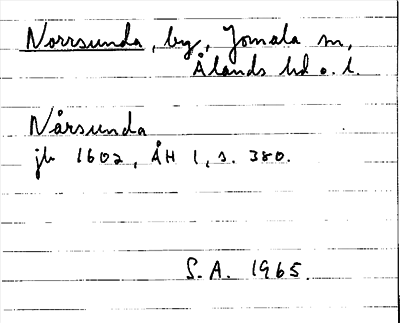 Norrsunda, by, Jomala sn,
Ålands hd o. l.
Nårsunda
jb 1602, ÅH 1, s. 380.
S.A. 1965.